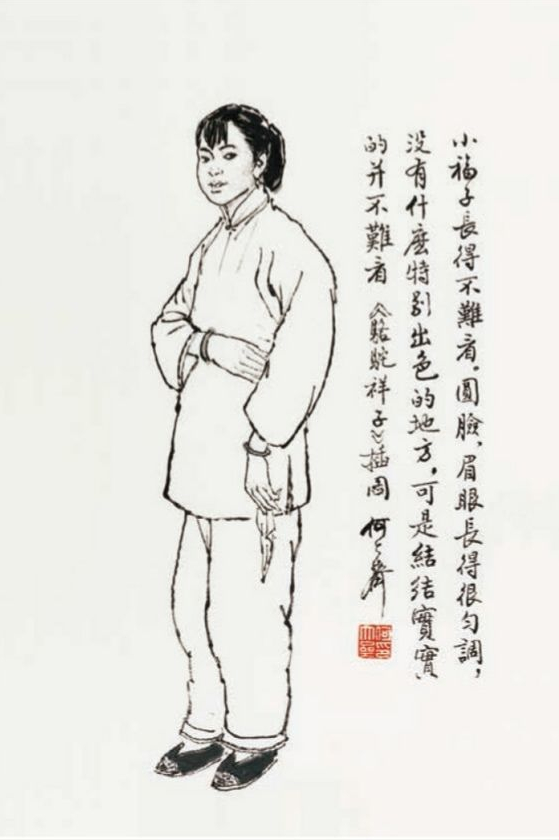 小福子長得不難看。圓臉，眉眼長得很勻調，
没有什麽特别出色的地方，可是結結實實
的并不難看 《駱駝祥子》插图 何大齊